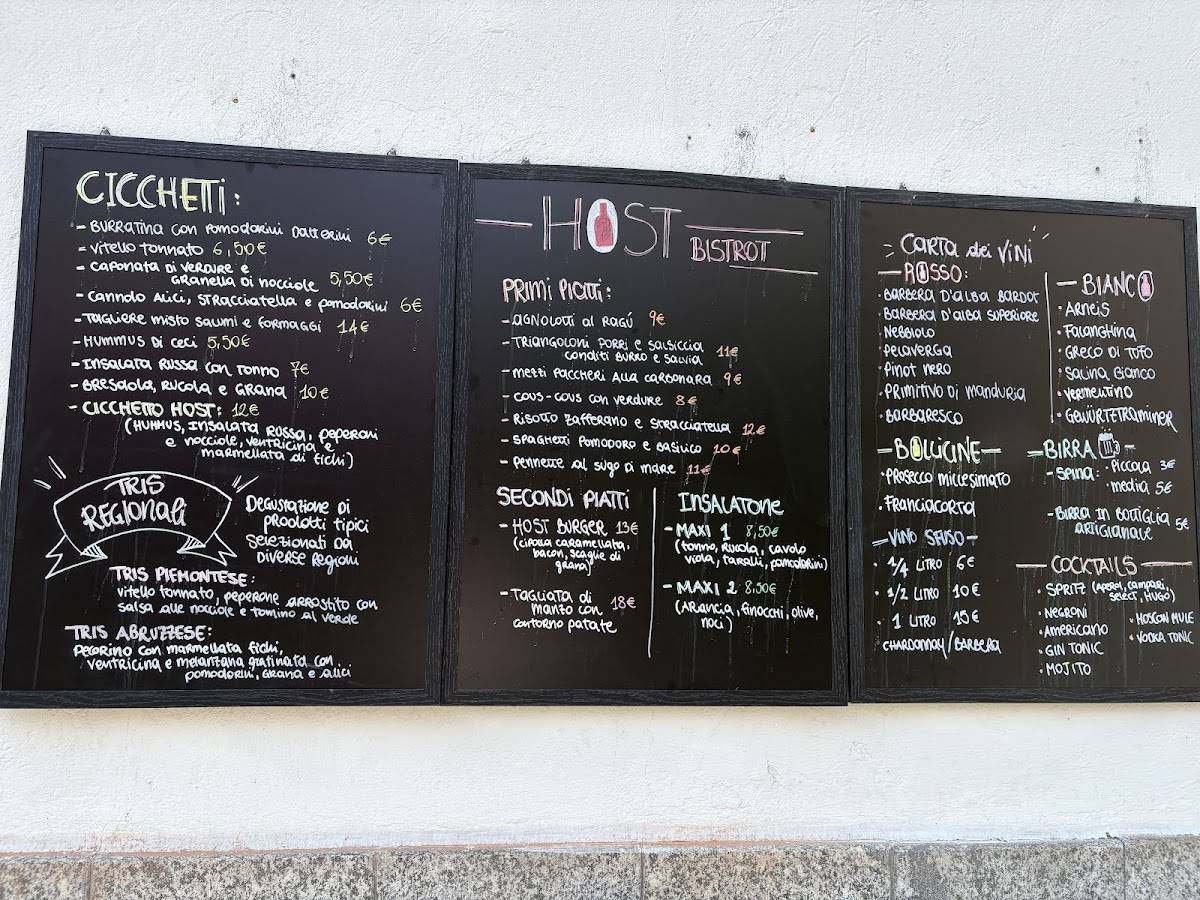 CICCHETTI:
- BURRATINA CON POMODORINI DATTERINI 6€
- VITELLO TONNATO 6,50€
- CAPONATA DI VERDURE E
GRANELLA DI NOCCIOLE 5,50€
- CANNOLO ALICI, STRACCIATELLA E POMODORINI 6€
- TAGLIERE MISTO SALUMI E FORMAGGI 14€
- HUMMUS DI CECI 5,50€
- INSALATA RUSSA CON TONNO 7€
- BRESAOLA, RUCOLA E GRANA 10€
- CICCHETTO HOST: 12€
(HUMMUS, INSALATA RUSSA, PEPERONI
E NOCCIOLE, VENTRICINA E
MARMELLATA DI FICHI)
TRIS
REGIONALI
DEGUSTAZIONE DI
PRODOTTI TIPICI
SELEZIONATI DA
DIVERSE REGIONI
TRIS PIEMONTESE:
VITELLO TONNATO, PEPERONE ARROSTITO CON
SALSA ALLE NOCCIOLE E TOMINO AL VERDE
TRIS ABRUZZESE:
PECORINO CON MARMELLATA FICHI,
VENTRICINA E MELANZANA GRATINATA CON
POMODORINI, GRANA E ALICI
HOST
BISTROT
PRIMI PIATTI:
- AGNOLOTTI AL RAGÚ 9€
- TRIANGOLONI PORRI E SALSICCIA
CONDITI BURRO E SALVIA 11€
- MEZZI PACCHERI ALLA CARBONARA 9€
- COUS-COUS CON VERDURE 8€
- RISOTTO ZAFFERANO E STRACCIATELLA 12€
- SPAGHETTI POMODORO E BASILICO 10€
- PENNETTE AL SUGO DI MARE 11€
SECONDI PIATTI
- HOST BURGER 13€
(CIPOLLA CARAMELLATA,
BACON, SCAGLIE DI
GRANA)
- TAGLIATA DI
MANZO CON 18€
CONTORNO PATATE
INSALATONE
- MAXI 1 8,50€
(TONNO, RUCOLA, CAVOLO
VIOLA, TARALLI, POMODORINI)
- MAXI 2 8,50€
(ARANCIA, FINOCCHI, OLIVE,
NOCI)
CARTA DEI VINI
- ROSSO:
· BARBERA D'ALBA BARDOT
· BARBERA D'ALBA SUPERIORE
· NEBBIOLO
· PELAVERGA
· PINOT NERO
· PRIMITIVO DI MANDURIA
· BARBARESCO
- BIANCO
· ARNEIS
· FALANGHINA
· GRECO DI TUFO
· SALINA BIANCO
· VERMENTINO
· GEWÜRTZTRAMINER
- BOLLICINE -
· PROSECCO MILLESIMATO
· FRANCIACORTA
- VINO SFUSO -
· 1/4 LITRO 6€
· 1/2 LITRO 10€
· 1 LITRO 15€
CHARDONNAY/BARBERA
- BIRRA -
- SPINA: · PICCOLA 3€
· MEDIA 5€
- BIRRA IN BOTTIGLIA 5€
ARTIGIANALE
- COCKTAILS -
· SPRITZ (APEROL, CAMPARI,
SELECT, HUGO)
· NEGRONI
· AMERICANO
· GIN TONIC
· MOJITO
· MOSCOW MULE
· VODKA TONIC